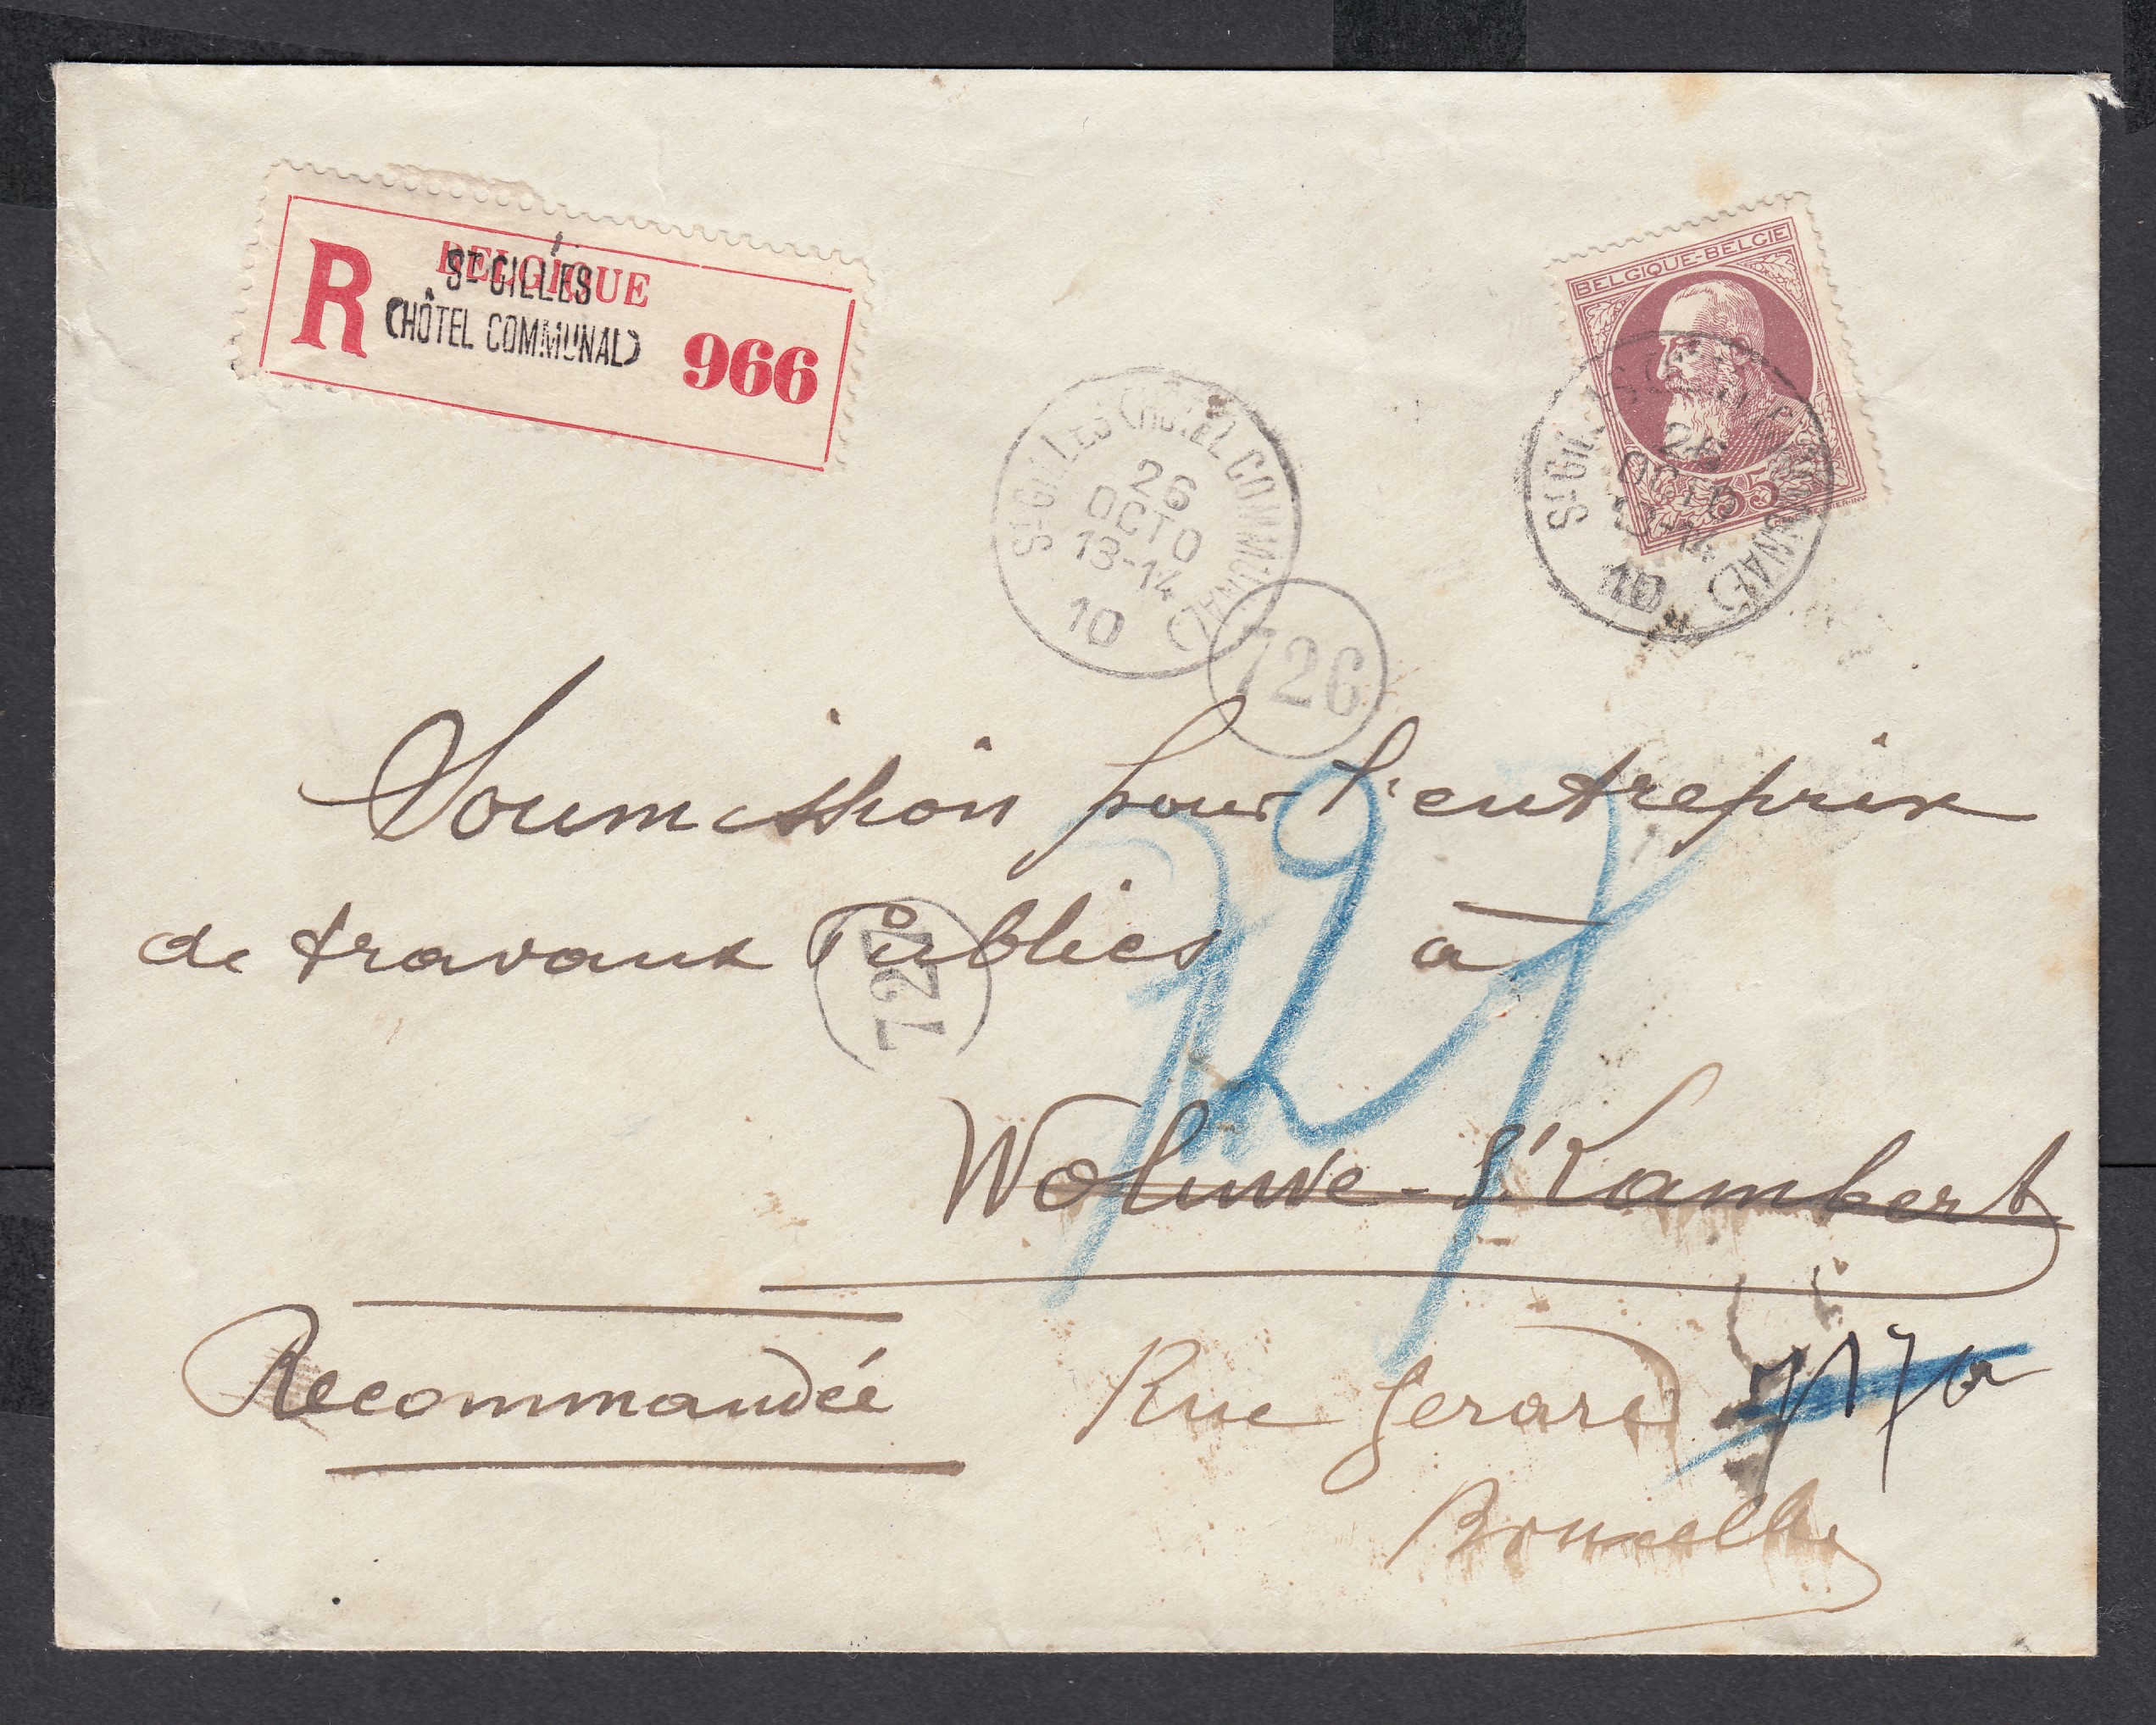 R BELGIQUE 966
ST GILLES
(HÔTEL COMMUNAL)
BELGIQUE-BELGIE
35
ST GILLES (HÔTEL COMMUNAL)
26
OCTO
13-14
10
ST GILLES (HÔTEL COMMUNAL)
26
OCTO
13-14
10
726
Soumission pour l'entreprise
de travaux Publics à
727
727
Woluwe-St Lambert
Recommandée
Rue Gerard
Bruxelles